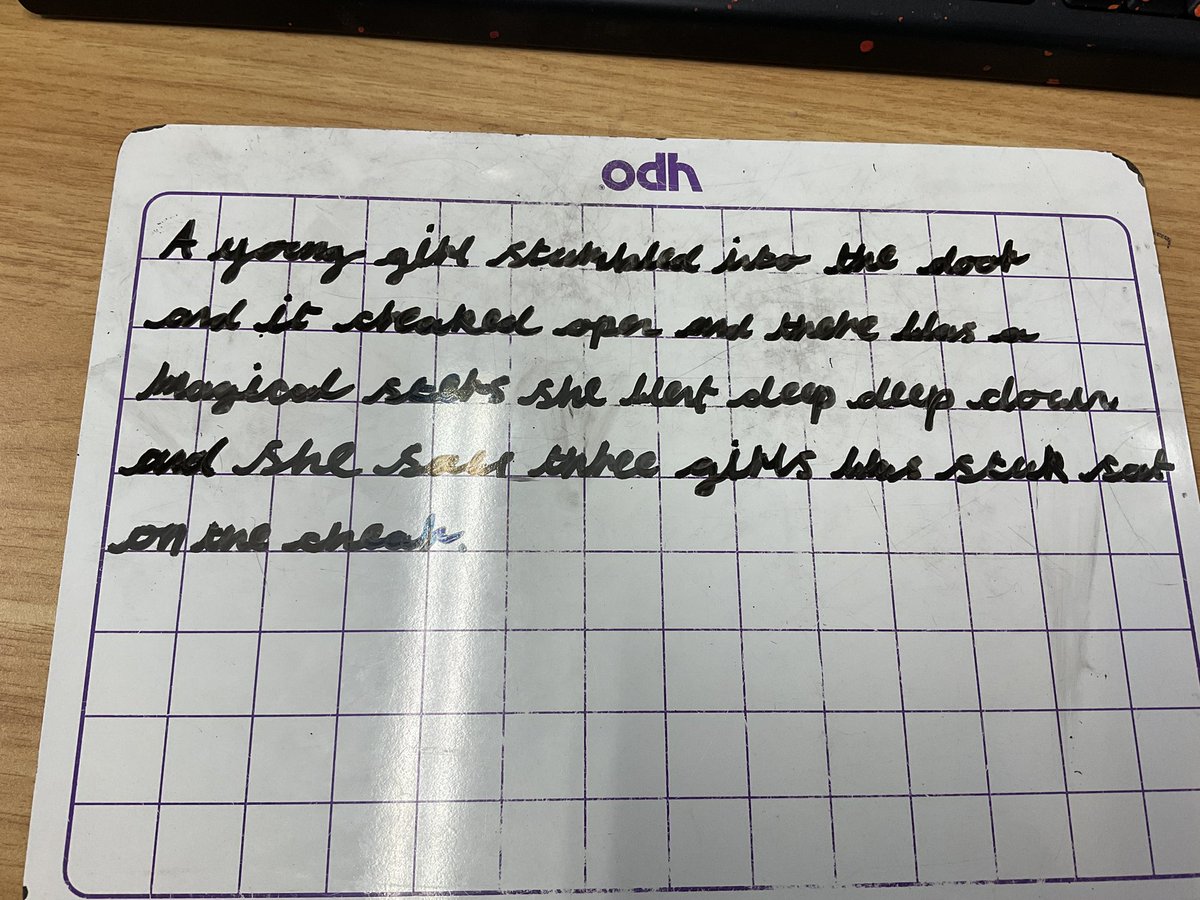 odh
A young girl stumbled into the door
and it creaked open and there was a
magical steps she went deep deep down
and she saw three girls was stuk sat
on the chear.